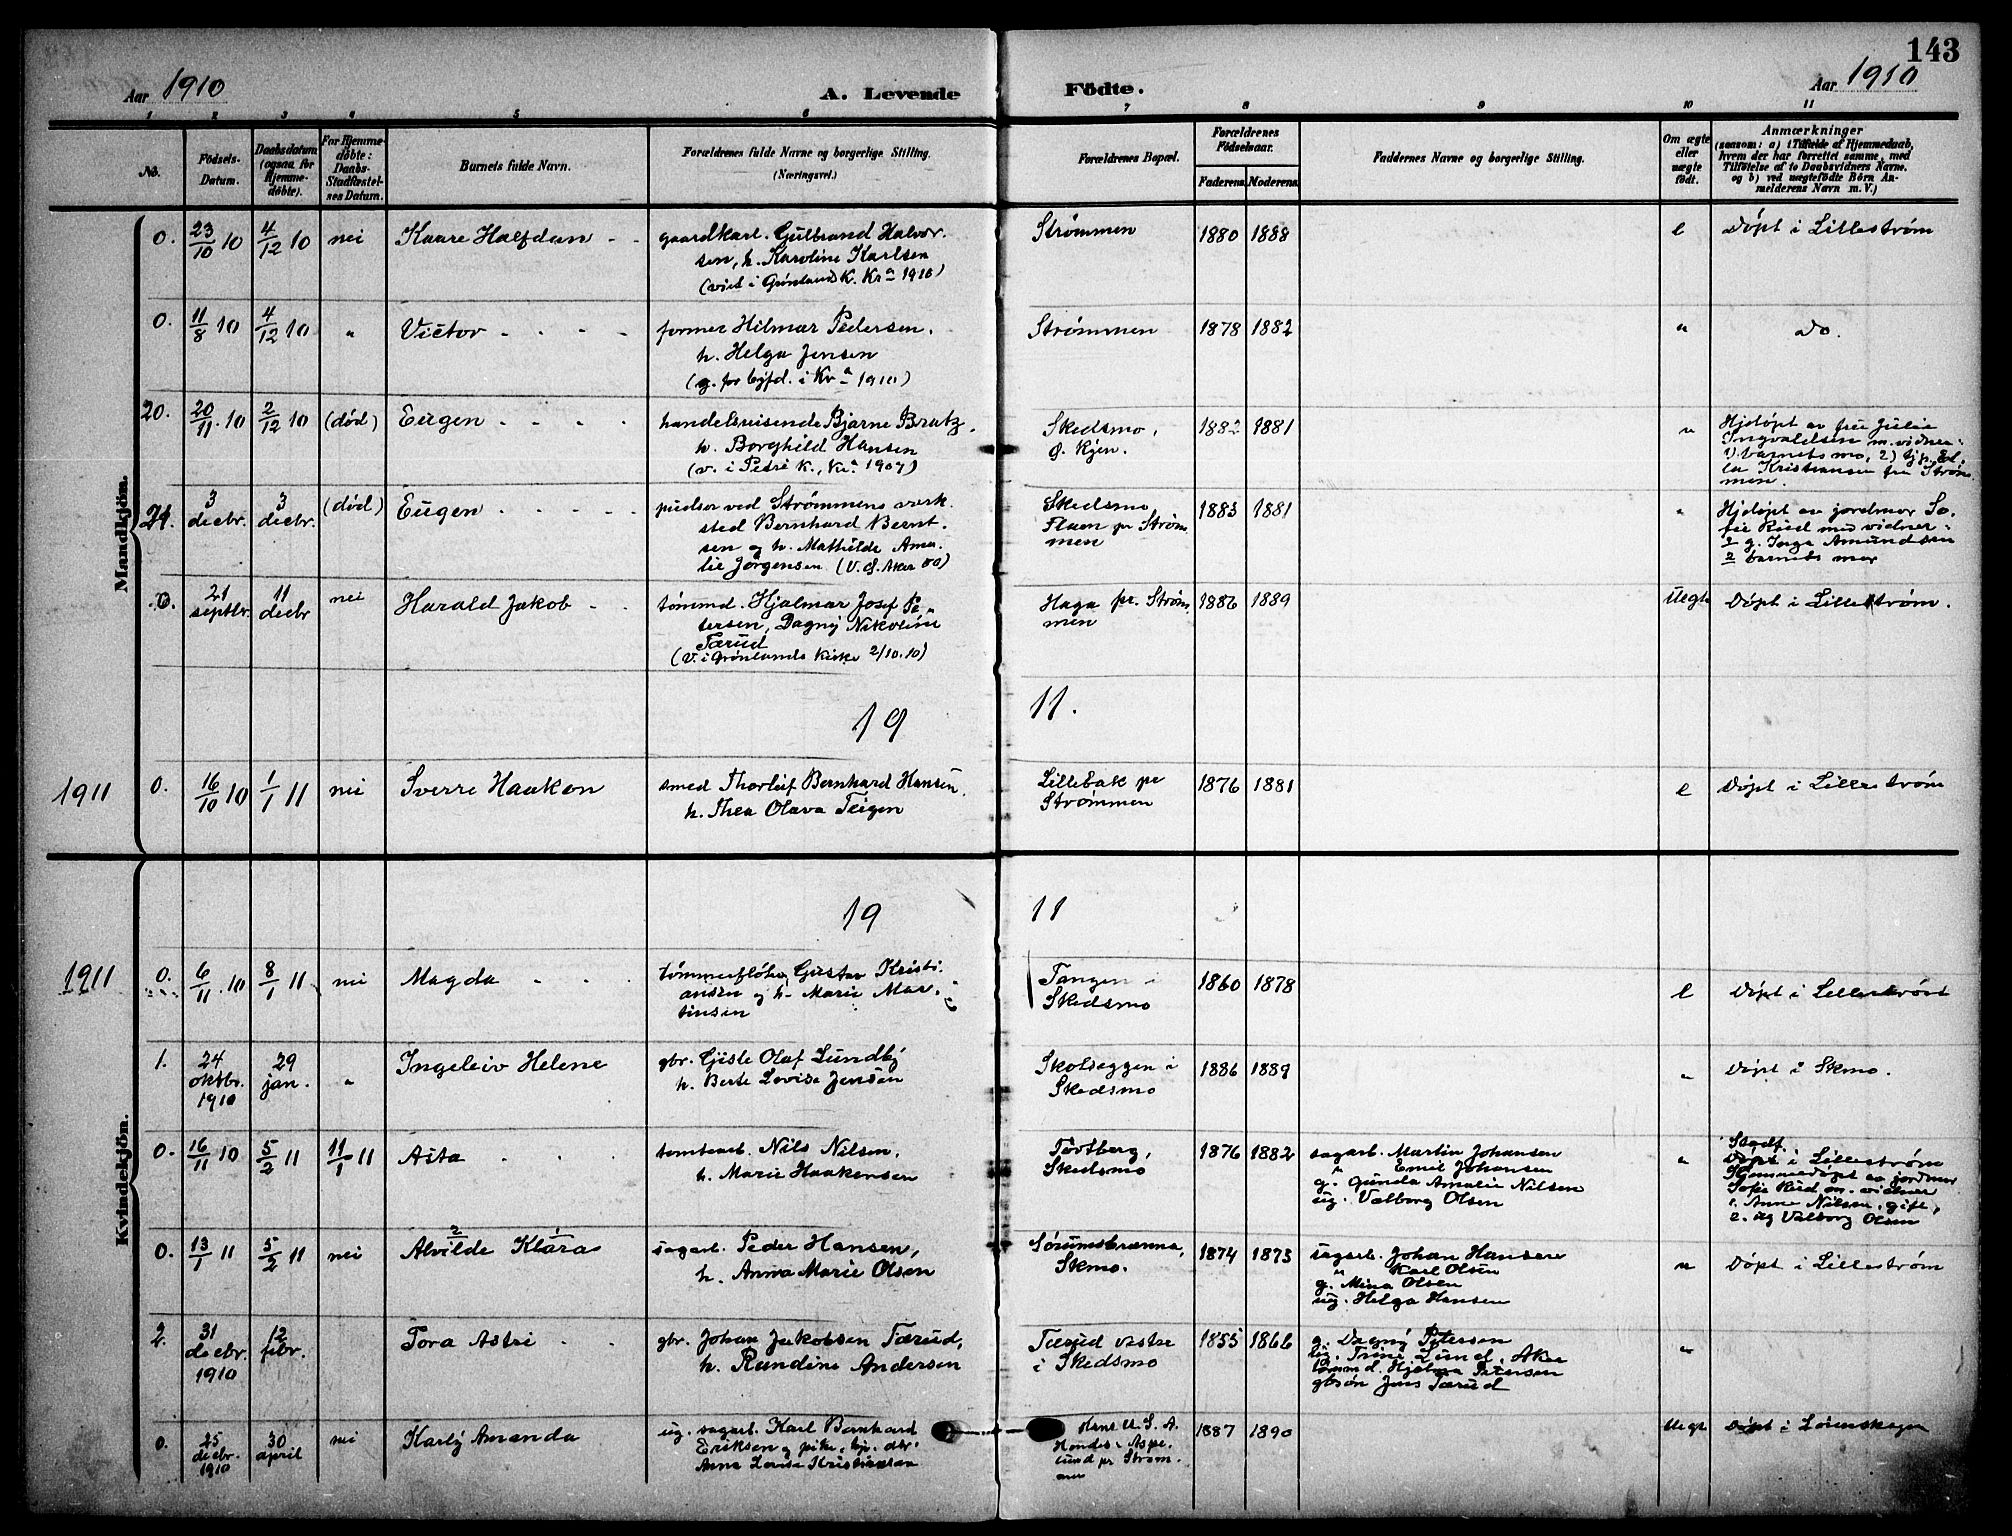 143
Aar 1910
A. Levende Födte.
Aar 1910
1 2 3 4 5 6 7 8 9 10 11
No.
Födsels-Datum.
Daabsdatum (ogsaa for Hjemme-döbte).
For Hjemme-döbte: Daabs-Stadfæstel-ses Datum.
Barnets fulde Navn.
Forældrenes fulde Navne og borgerlige Stilling. (Næringsvei.)
Forældrenes Bopæl.
Forældrenes Födselsaar.
Faderens Moderens
Faddernes Navne og borgerlige Stilling.
Om ægte eller uægte födt.
Anmærkninger
(saasom: a) i Tilfælde af Hjemmedaab, hvem der har forrettet samme, med Tilföielse af to Daabsvidners Navne, og b) ved uægtefödte Börn An-melderens Navn m. V.)
Mandkjön.
0. 23/10 10 4/12 10 nei Kaare Halfdan
gaardkarl. Gulbrand Halvor-
sen, h. Karoline Karlsen
(viet i Grønland K. Kra 1910)
Strømmen 1880 1888 e Døpt i Lillestrøm
0. 11/8 10 4/12 10 " Victor
former Hilmar Pedersen.
h. Helga Jensen
(g. for byfd. i Kra 1910)
Strømmen 1878 1882 " Do.
20. 20/11 10 2/12 10 (død) Eugen
handelsreisende Bjarne Bratz.
h. Borghild Hansen
(v. i Petri K., Kra 1907)
Skedsmo,
Ø. Kjen.
1882 1881 "
Hjdøpt av fru Julie
Ingvaldsen m. vidner:
1) barnets mo, 2) tjp. El-
la Kristiansen fru Strøm
men.
21. 3 decbr. 3 decbr. (død) Eugen
pudser ved Strømmens verk
sted Bernhard Bernt-
sen og h. Mathilde Ama-
lie Jørgensen (V. Ø. Aker 00)
Skedsmo
Flaen pr Strøm
men
1883 1881 "
Hjdøpt av jordmor So-
fie Ruud med vidner:
1 g. Inga Amundsen
2 barnets mor
0. 21 septbr. 11 decbr nei Harald Jakob
tømmd. Hjalmar Josef Pe-
tersen, Dagny Nikoline
Tærud
(V. i Grønlands Kirke 2/10.10)
Haga pr. Strøm
men
1886 1889 Uegte Døpt i Lillestrøm.
19 11.
1911
0. 16/10 10 1/1 11 nei Sverre Haakon
smed Thorleif Bernhard Hansen.
h. Thea Olava Teigen
Lillebak pr
Strømmen
1876 1881 e Døpt i Lillestrøm
Kvindekjön.
19 11
1911
0. 6/11 10 8/1 11 nei Magda
tømmerfløter Gustav Kristi-
ansen og h. Marie Mar-
tinsen
Tangen i
Skedsmo
1860 1878 e Døpt i Lillestrøm
1. 24 oktbr. 1910 29 jan. " Ingeleiv Helene
gbr. Gisle Olaf Lundby
h. Berte Lovise Jensen
Skolseggen i
Skedsmo
1886 1889 " Døpt i Skmo.
0. 16/11 10 5/2 11 11/1 11 Asta
tomtearb. Nils Nilsen.
h. Marie Haakensen
Tørtberg,
Skedsmo
1876 1882
sagarb. Martin Johansen
" Emil Johansen
g. Gunda Amalie Nilsen
ug. Valborg Olsen
"
Stadf.
Døpt i Lillestrøm
Hjemmedøpt av jordmor
Sofie Ruud m. vidner
1. Anne Nilsen, gift,
2. ug Valborg Olsen
0. 13/1 11 5/2 11 nei Alvilde Klara
2
sagarb. Peder Hansen,
h. Anna Marie Olsen
Sørumsbrænna,
Skmo.
1874 1873
sagarb. Johan Hansen
" Karl Olsen
g. Mina Olsen
ug. Helga Hansen
" Døpt i Lillestrøm
2. 31 decbr. 1910 12 febr. Tora Astri
gbr. Johan Jakobsen Tærud,
h. Randine Andersen
Tærud vestre
i Skedsmo
1855 1866
g. Dagny Petersen
ug. Trine Lund, Aker
tømmd. Hjalmar Petersen
gbsøn Jens Tærud
"
0. 25 decbr. 1910 30 april nei Karly Amanda
ug. sagarb. Karl Bernhard
Eriksen og pike, tj.
Anna Lovise Kristiansen
Hans U. S. A.
Hendes: Aspe-
lund pr Strøm-
men
1887 1890 Uegt Døpt i Lørenskogen